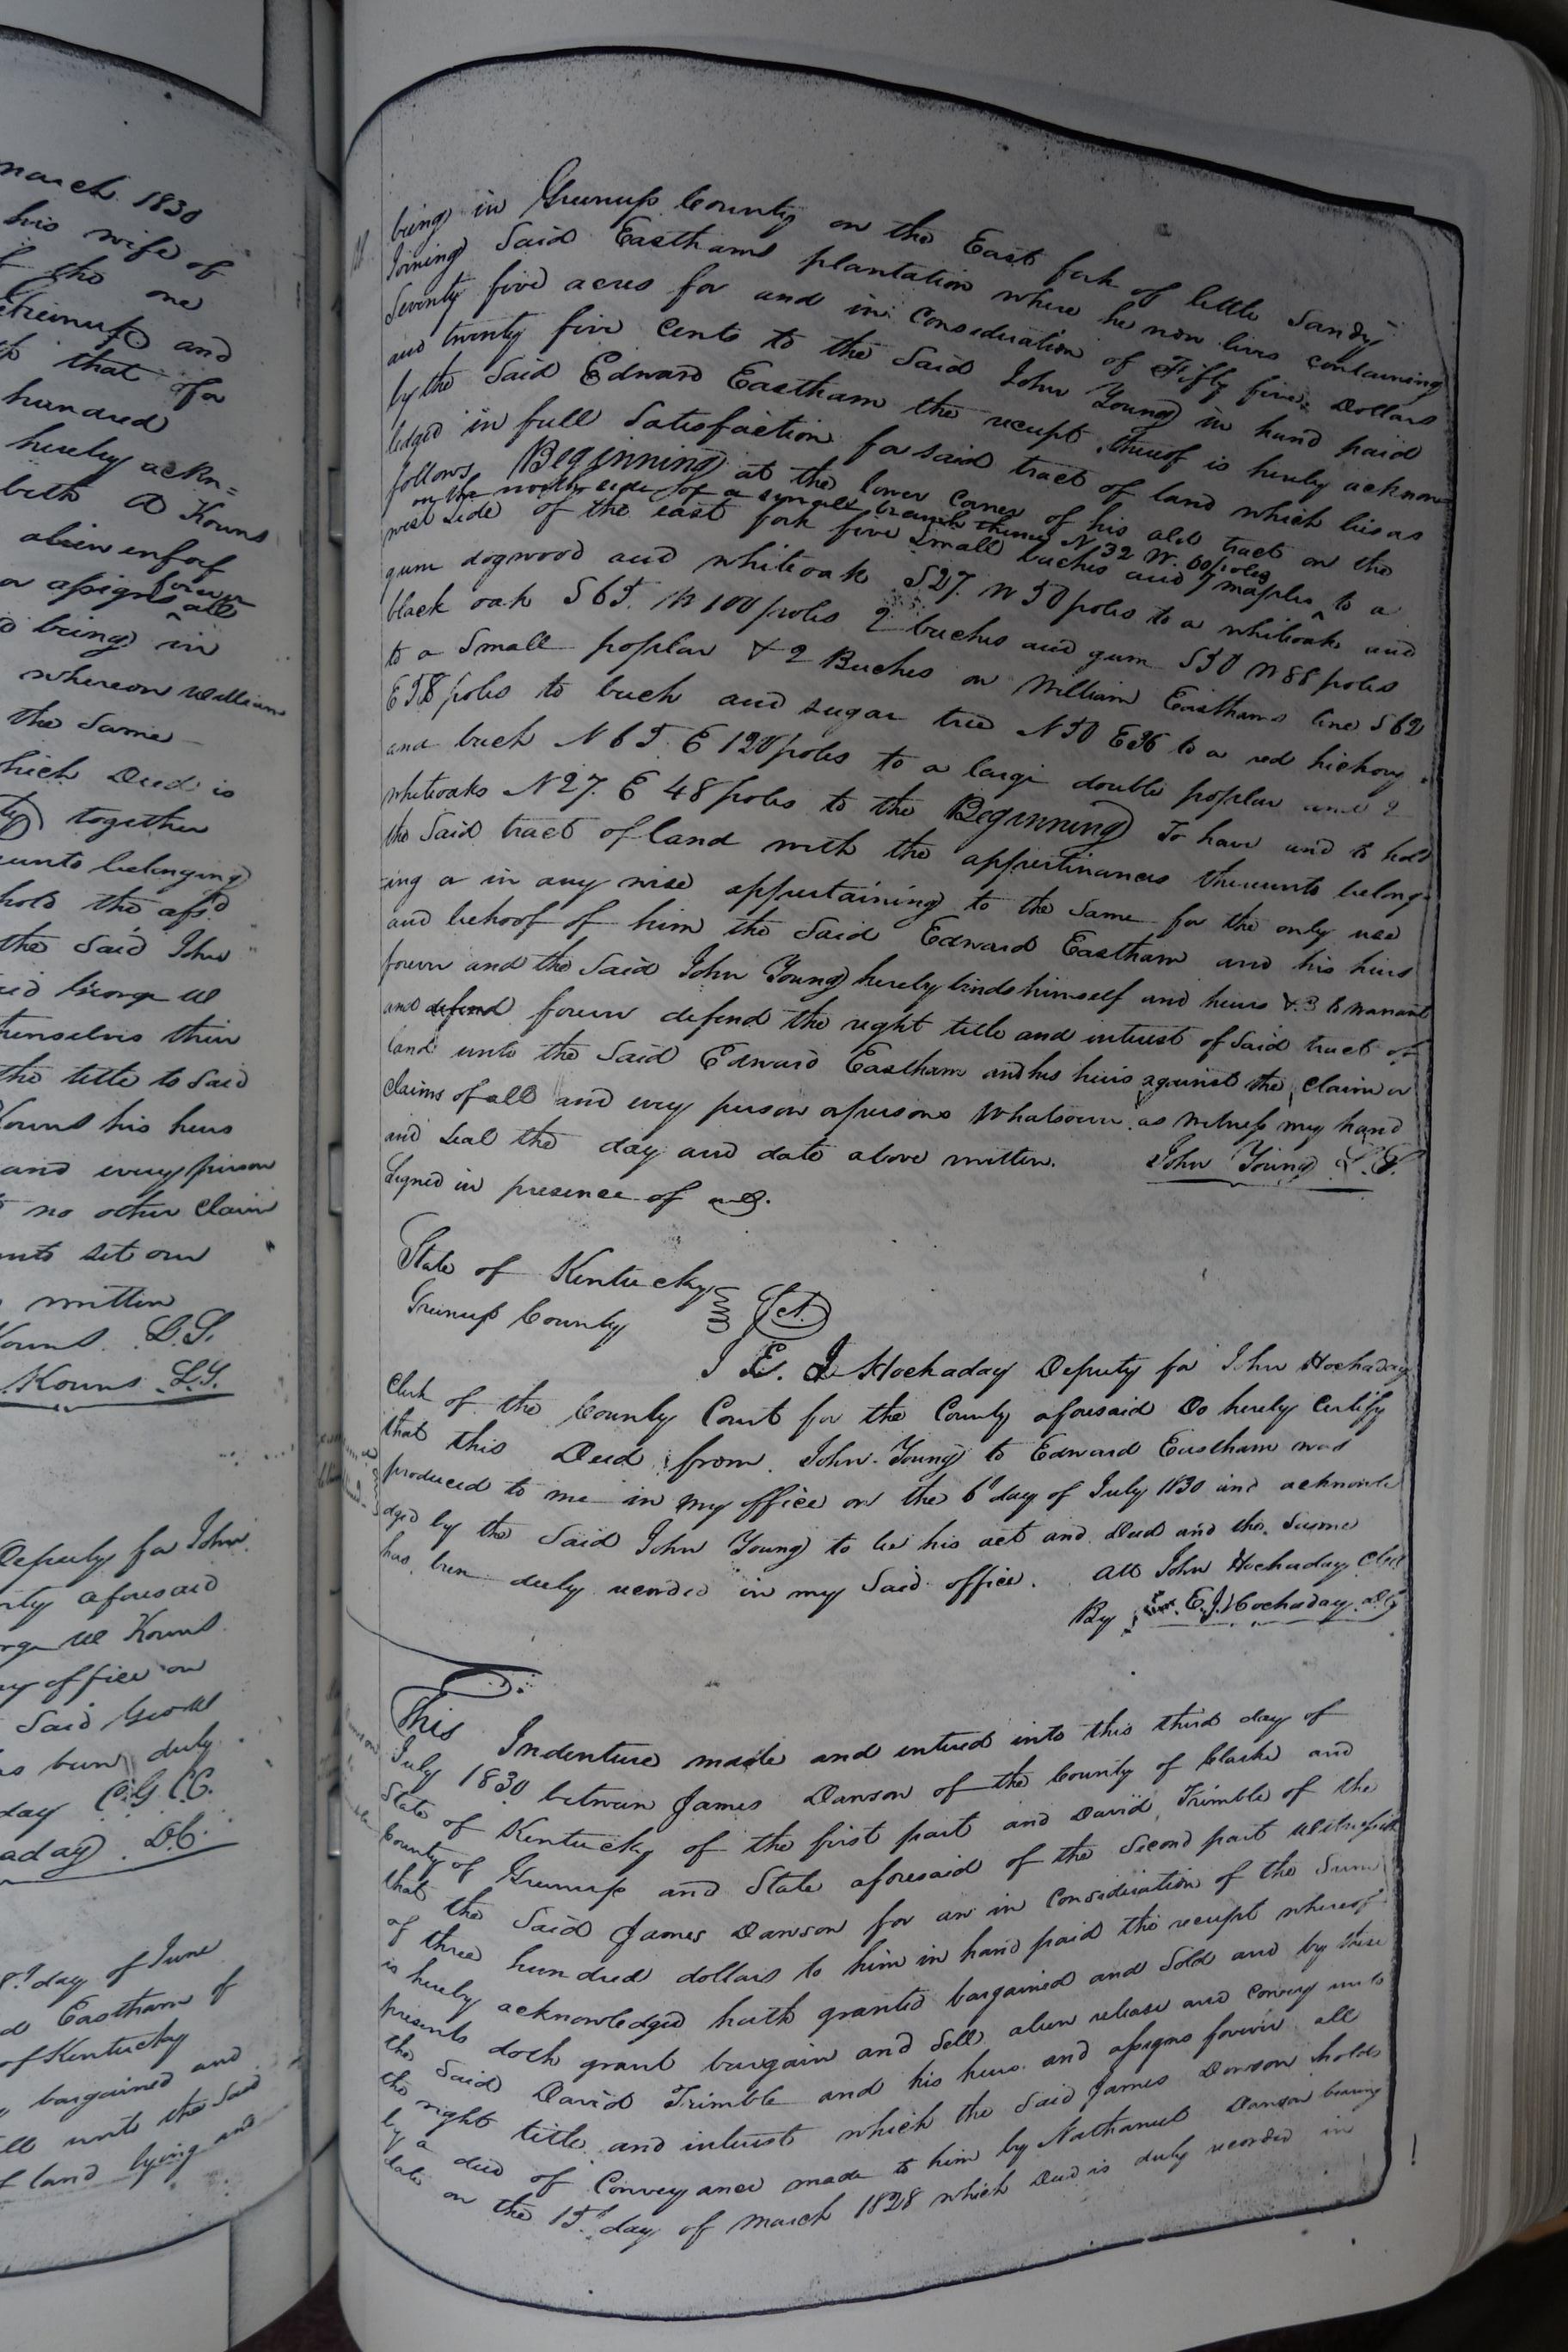 march 1830
his wife of
the one
Greenup and
that for
hundred
hereby ackn=
beth A Kouns
alien enfeof
or assigns forever all
being in
whereon William
the Same
which Deed is
together
unto belonging
hold the afsd
the Said John
George W
themselves their
the title to Said
Kouns his heirs
and every person
no other Claim
unto set our
written
Kouns. L.S.
Kouns L.S.
Deputy for John
aforesaid
W Kouns
my office on
Said
has been duly
C.G.C.C.
D.C.
day of June
Eastham of
of Kentucky
bargained and
unto the Said
of land lying and
being in Greenup County on the East fork of little Sandy
Joining Said Easthams plantation where he now lives containing
Seventy five acres for and in consideration of Fifty five Dollars
and twenty five Cents to the Said John Young in hand paid
by the Said Edward Eastham the receipt thereof is hereby acknow
ledged in full Satisfaction for said tract of land which lies as
follows, Beginning at the lower Corner of his old tract on the
on the north side of a small branch thence N 32 W. 60 poles
west side of the east fork five small buches and 7 maples to a
gum dogwood and whiteoak S 27. W 50 poles to a whiteoak and
black oak S 65. W 100 poles 2 buches and gum S 50 W 88 poles
to a Small poplar & 2 Buches on William Easthams line S 62
E 58 poles to buch and sugar tree N 50 E 36 to a red hickory
and buch N 65. E 120 poles to a large double poplar and 2
whiteoaks N 27. E 48 poles to the Beginning To have and to hold
the Said tract of land with the appertinances thereunto belong-
ing or in any wise appertaining to the Same for the only use
and behoof of him the Said Edward Eastham and his heirs
forever and the Said John Young hereby binds himself and heirs &.3 to warrant
and defend forever defend the right title and interest of Said tract of
land unto the Said Edward Eastham and his heirs against the claim or
claims of all and every person or persons Whatsoever as witness my hand
and Seal the day and date above written. John Young L.S.
Signed in presence of us.
State of Kentucky
Greenup County Sct.
I E. J Hockaday Deputy for John Hockaday
Clerk of the County Court for the County aforesaid Do hereby Certify
that this Deed from John Young to Edward Eastham was
produced to me in my office on the 6th day of July 1830 and acknowle
dged by the Said John Young to be his act and Deed and the Same
has been duly recorded in my Said office. Att John Hockaday Clk
By E. J. Hockaday D.C
This Indenture made and entered into this third day of
July 1830 between James Dawson of the County of Clarke and
State of Kentucky of the first part and David Trimble of the
County of Greenup and State aforesaid of the Second part Witnesseth
that the Said James Dawson for an in Consideration of the Sum
of three hundred dollars to him in hand paid the receipt whereof
is hereby acknowledged hath granted bargained and Sold and by these
presents doth grant bargain and Sell alien release and Convey unto
the Said David Trimble and his heirs and assigns forever all
the right title and interest which the Said James Dawson holds
by a deed of Conveyance made to him by Nathaniel Dawson bearing
date on the 15th day of March 1828 which Deed is duly recorded in